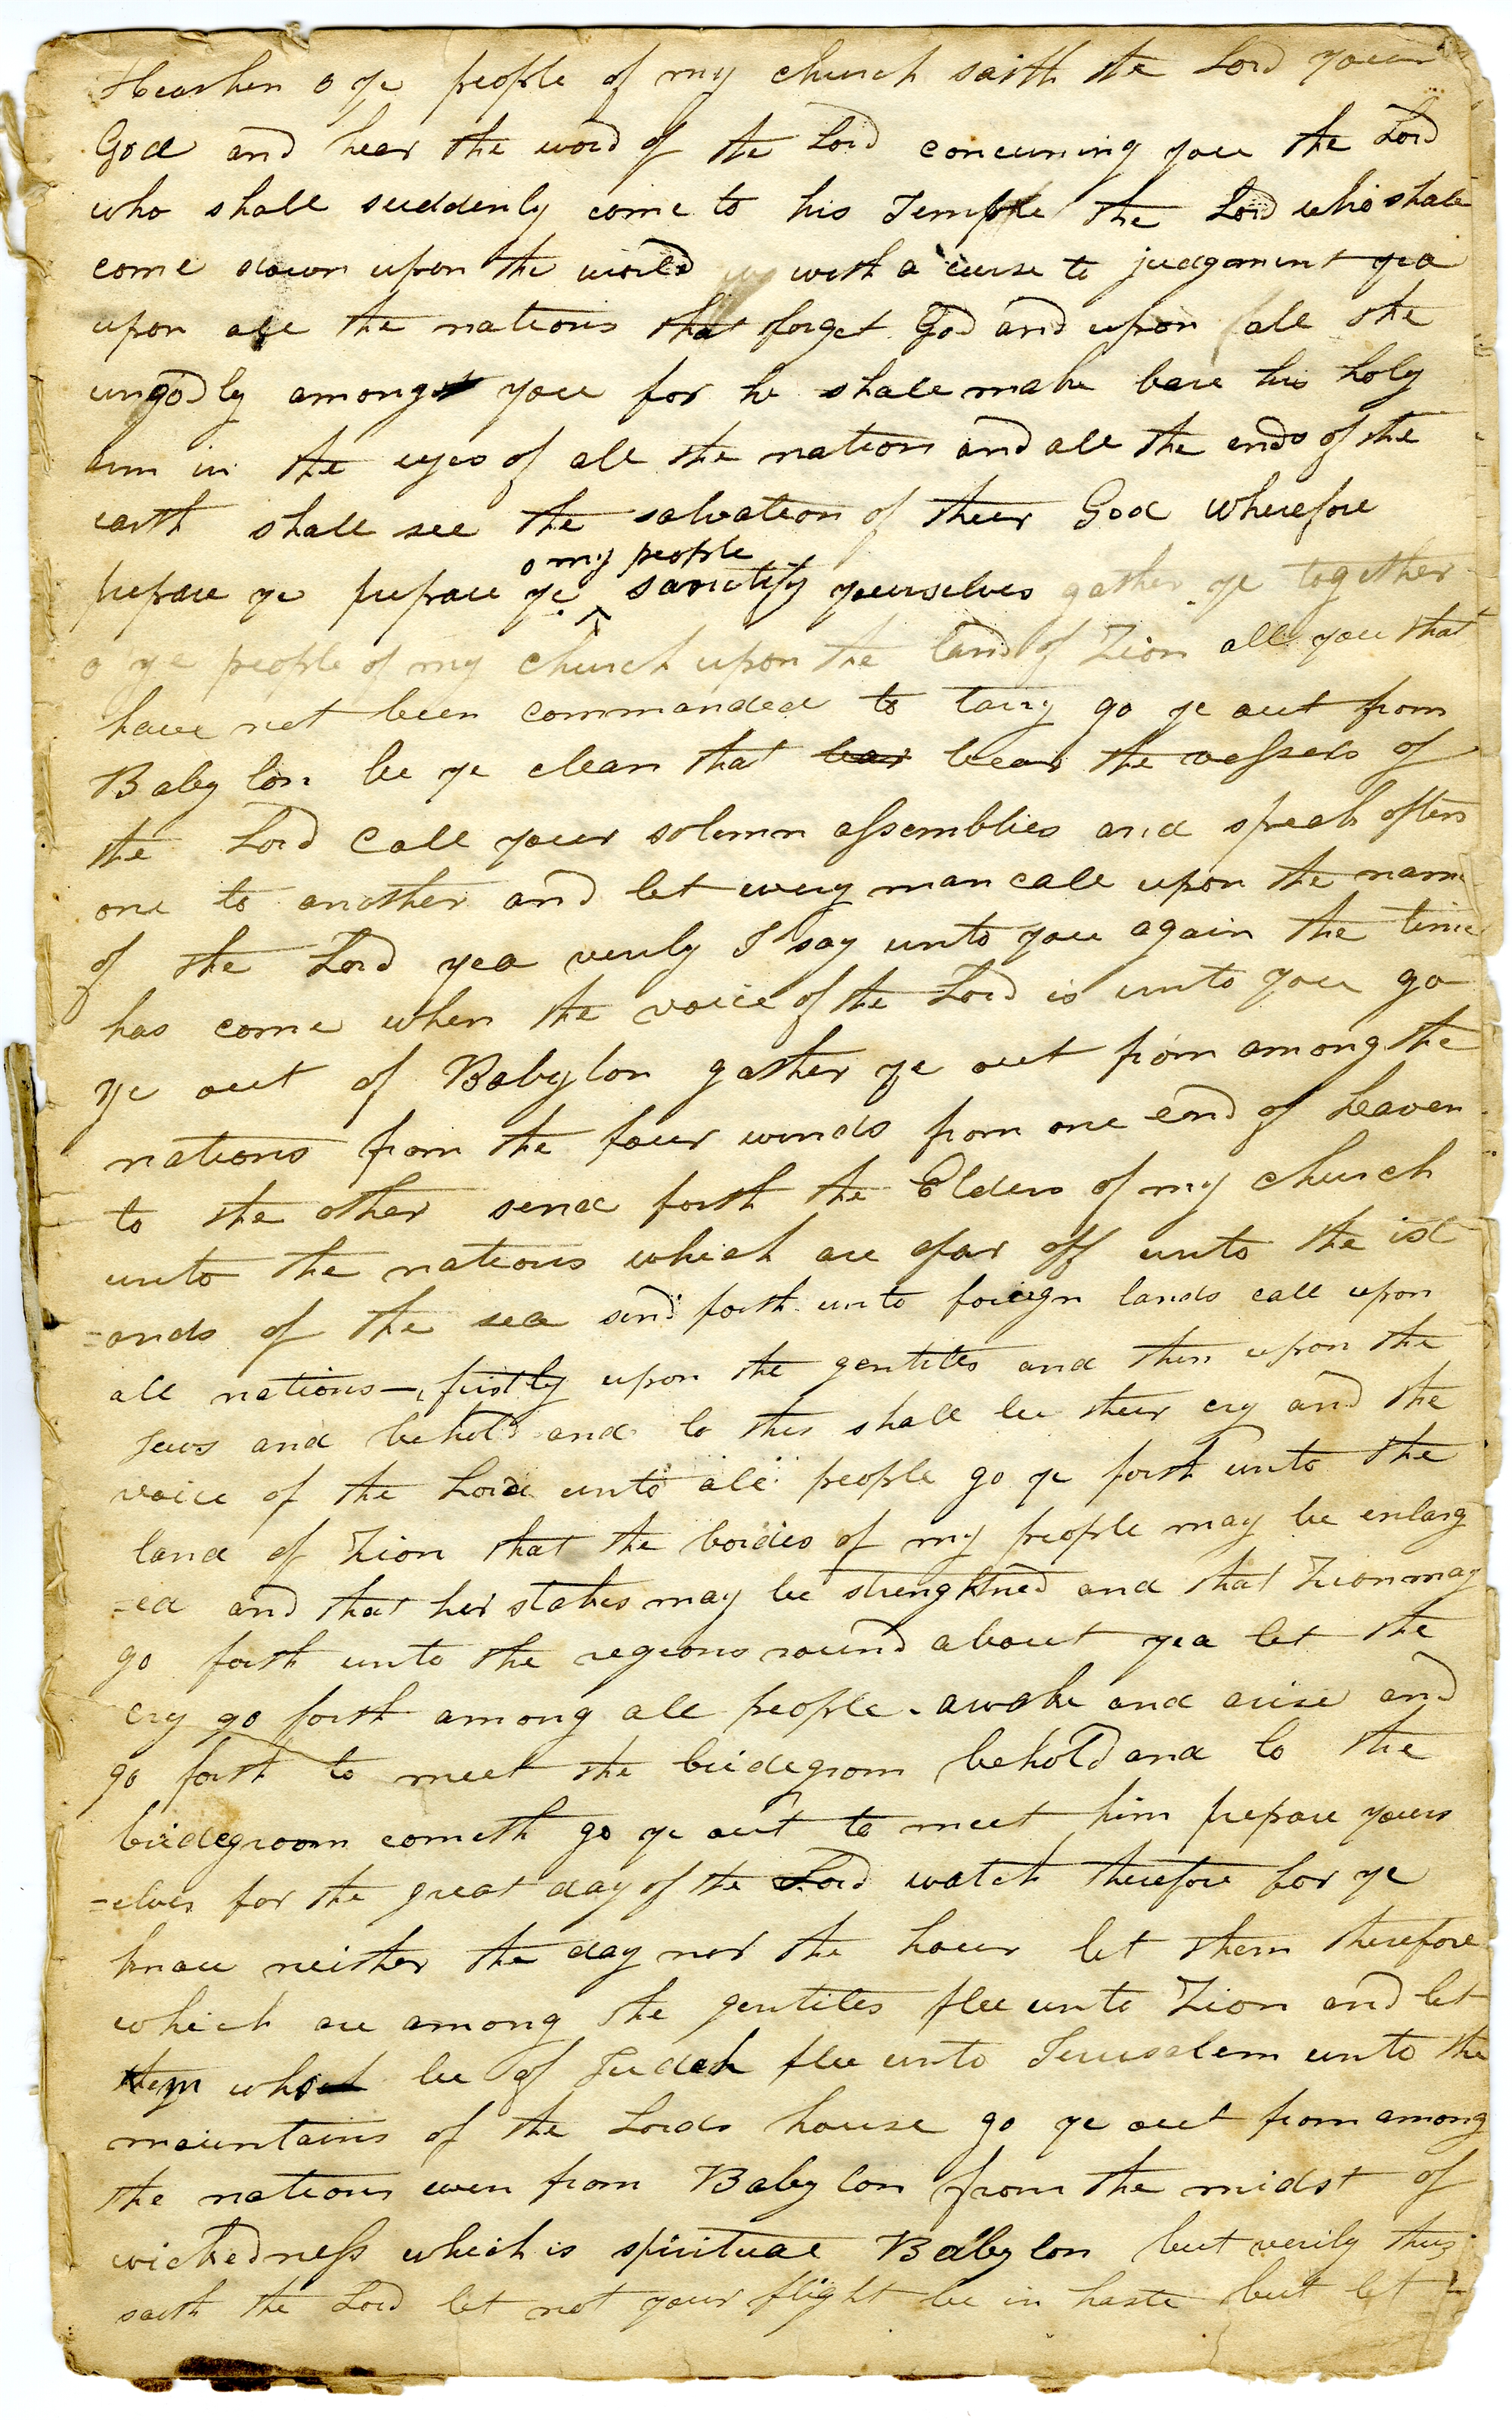 Hearken o ye people of my church saith the Lord your
God and hear the word of the Lord concerning you the Lord
who shall suddenly come to his Temple the Lord who shall
come down upon the world with a curse to judgement yea
upon all the nations that forget God and upon all the
ungodly among you for he shall make bare his holy
arm in the eyes of all the nations and all the ends of the
earth shall see the salvation of their God wherefore
o my people
prepare ye prepare ye sanctify yourselves gather ye together
o ye people of my church upon the land of Zion all you that
have not been commanded to tarry go ye out from
Babylon be ye clean that bear bear the vessels of
the Lord Call your solemn assemblies and speak often
one to another and let every man call upon the name
of the Lord yea verily I say unto you again the time
has come when the voice of the Lord is unto you go
ye out of Babylon gather ye out from among the
nations from the four winds from one end of heaven
to the other send forth the Elders of my church
unto the nations which are afar off unto the isl
=ands of the sea send forth unto foreign lands call upon
all nations—firstly upon the gentiles and then upon the
Jews and behold and lo this shall be their cry and the
voice of the Lord unto all people go ye forth unto the
land of Zion that the borders of my people may be enlarg
=ed and that her stakes may be strengthned and that Zion may
go forth unto the regions round about yea let the
cry go forth among all people. awake and arise and
go forth to meet the bridegrom behold and lo the
bridegroom cometh go ye out to meet him prepare yours
=elves for the great day of the Lord watch therefore for ye
know neither the day nor the hour let them therefore
which are among the gentiles flee unto Zion and let
them who be of Judah flee unto Jerusalem unto the
mountains of the Lords house go ye out from among
the nations even from Babylon from the midst of
wickedness which is spiritual Babylon but verily thus
saith the Lord let not your flight be in haste but let